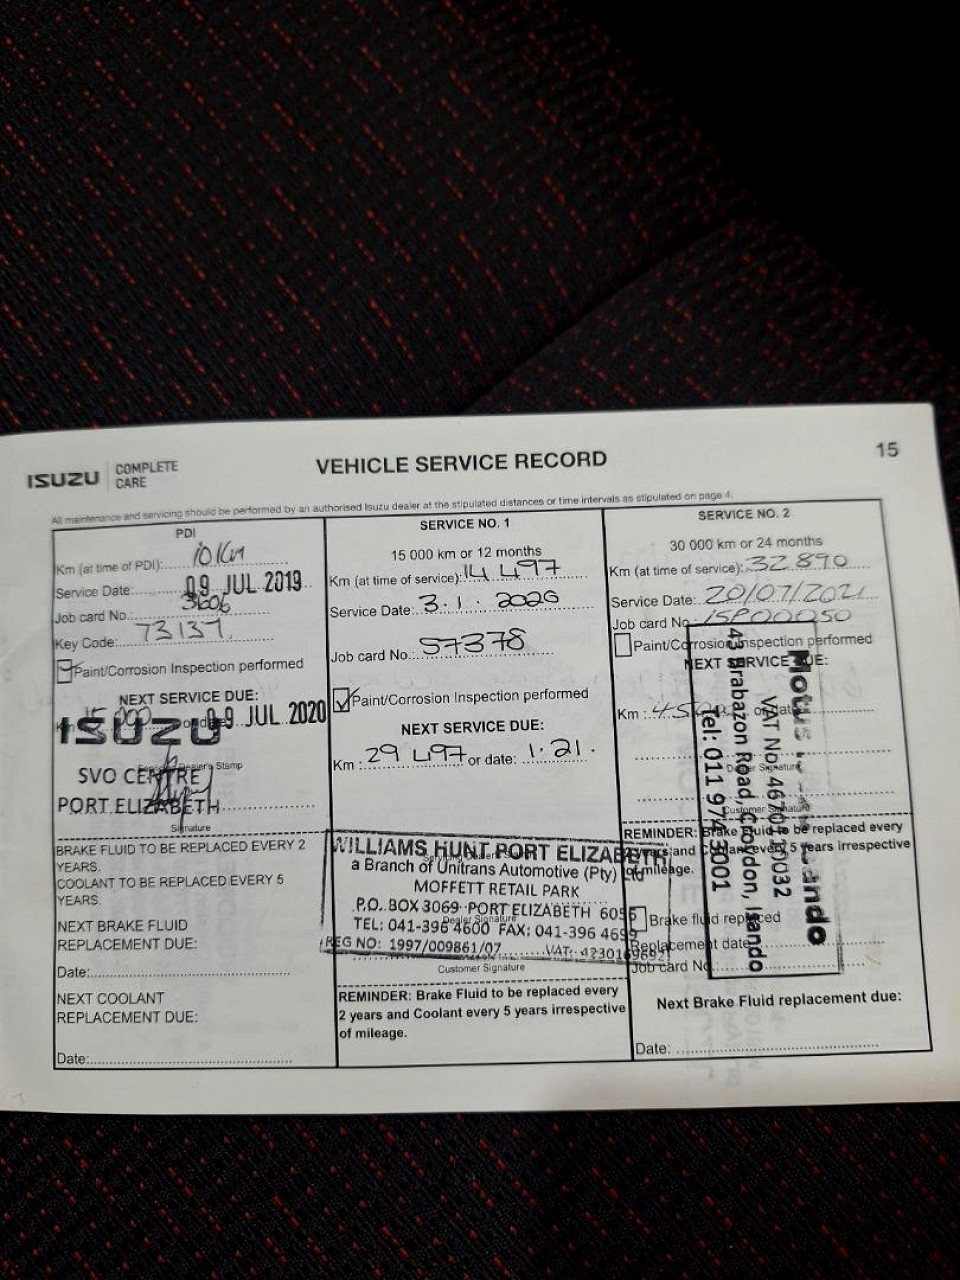 ISUZU COMPLETE CARE
VEHICLE SERVICE RECORD
15
All maintenance and servicing should be performed by an authorised Isuzu dealer at the stipulated distances or time intervals as stipulated on page 4.
PDI
Km (at time of PDI): 10 Km
Service Date: 09 JUL 2019
Job card No.: 3606
Key Code: 73137
Paint/Corrosion Inspection performed
NEXT SERVICE DUE:
Km 15 000 or date 09 JUL 2020
ISUZU
Dealer's Stamp
SVO CENTRE
PORT ELIZABETH
Signature
BRAKE FLUID TO BE REPLACED EVERY 2
YEARS.
COOLANT TO BE REPLACED EVERY 5
YEARS.
NEXT BRAKE FLUID
REPLACEMENT DUE:
Date:
NEXT COOLANT
REPLACEMENT DUE:
Date:
SERVICE NO. 1
15 000 km or 12 months
Km (at time of service): 14 497
Service Date: 3.1.2020
Job card No.: 57378
Paint/Corrosion Inspection performed
NEXT SERVICE DUE:
Km : 29 497 or date: 1.21.
WILLIAMS HUNT PORT ELIZABETH
a Branch of Unitrans Automotive (Pty) Ltd
MOFFETT RETAIL PARK
P.O. BOX 3069 PORT ELIZABETH 6056
Dealer Signature
TEL: 041-396 4600 FAX: 041-396 4699
REG NO: 1997/009861/07 VAT: 4230169692
Customer Signature
REMINDER: Brake Fluid to be replaced every
2 years and Coolant every 5 years irrespective
of mileage.
SERVICE NO. 2
30 000 km or 24 months
Km (at time of service): 32 890
Service Date: 20/07/2021
Job card No: ISP00050
Paint/Corrosion Inspection performed
NEXT SERVICE DUE:
Km : 45000 or date
Dealer Signature
Customer Signature
REMINDER: Brake Fluid to be replaced every
years and Coolant every 5 years irrespective
of mileage.
Brake fluid replaced
Replacement date
Job card No
Next Brake Fluid replacement due:
Date:
Motus Isando
VAT No:
43 Brabazon Road, Croydon, Isando
Tel: 011 974 3001